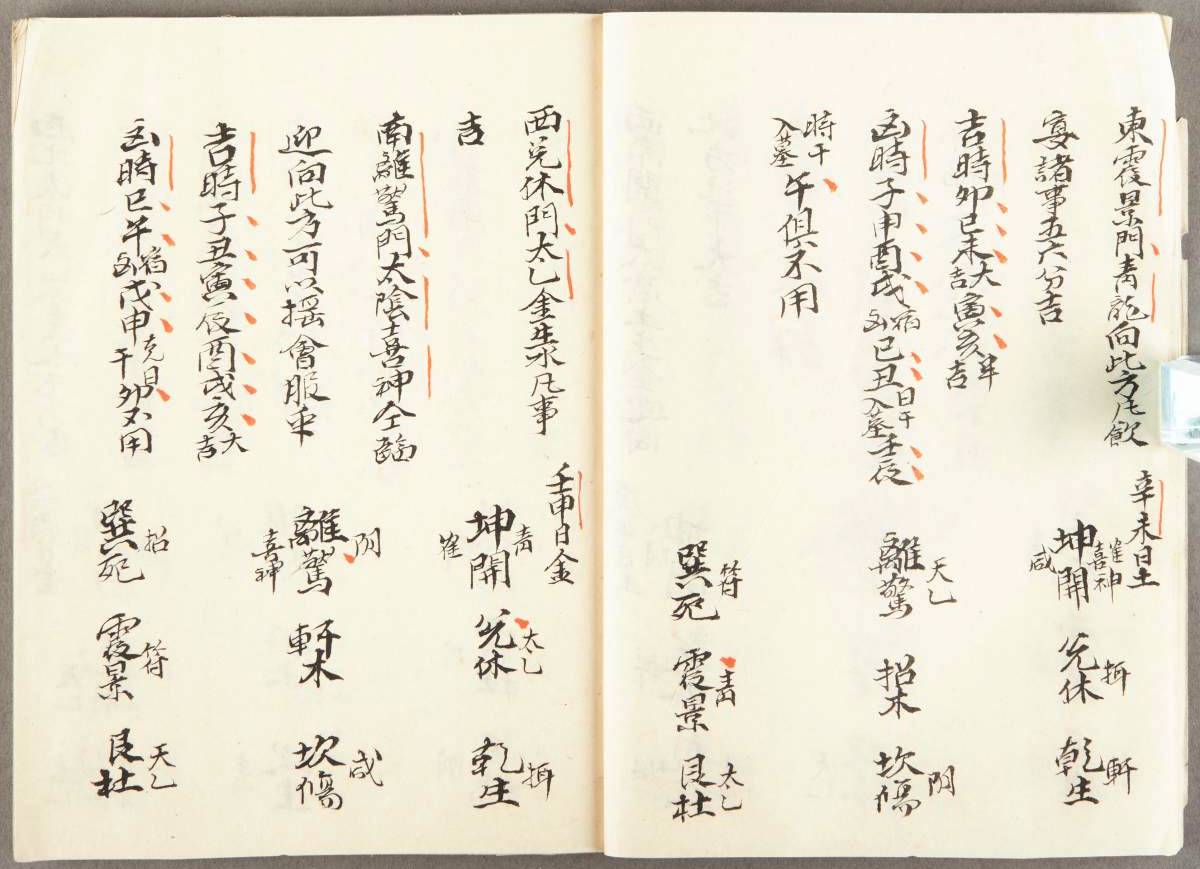 東震景門青龍向此方凡飲
宴諸事五六分吉
吉時卯巳未大吉寅亥半吉
凶時子申酉戌宿凶巳丑日干入墓壬辰
時干入墓午俱不用
辛未日土
坤開 雀 喜神 咸
兌休
乾生 軒
離驚 天乙
招木
坎傷 阴
巽死 符
震景 青
艮杜 太乙
西兌休門太乙金生水凡事
吉
南離驚門太陰喜神仝臨
迎向此方可以搖會服
吉時子丑寅辰酉戌亥大吉
凶時巳午宿凶戊申克日干卯不用
壬申日金
坤開 青 雀
兌休 太乙
乾生
離驚 阴 喜神
軒木
坎傷 咸
巽死 招
震景 符
艮杜 天乙